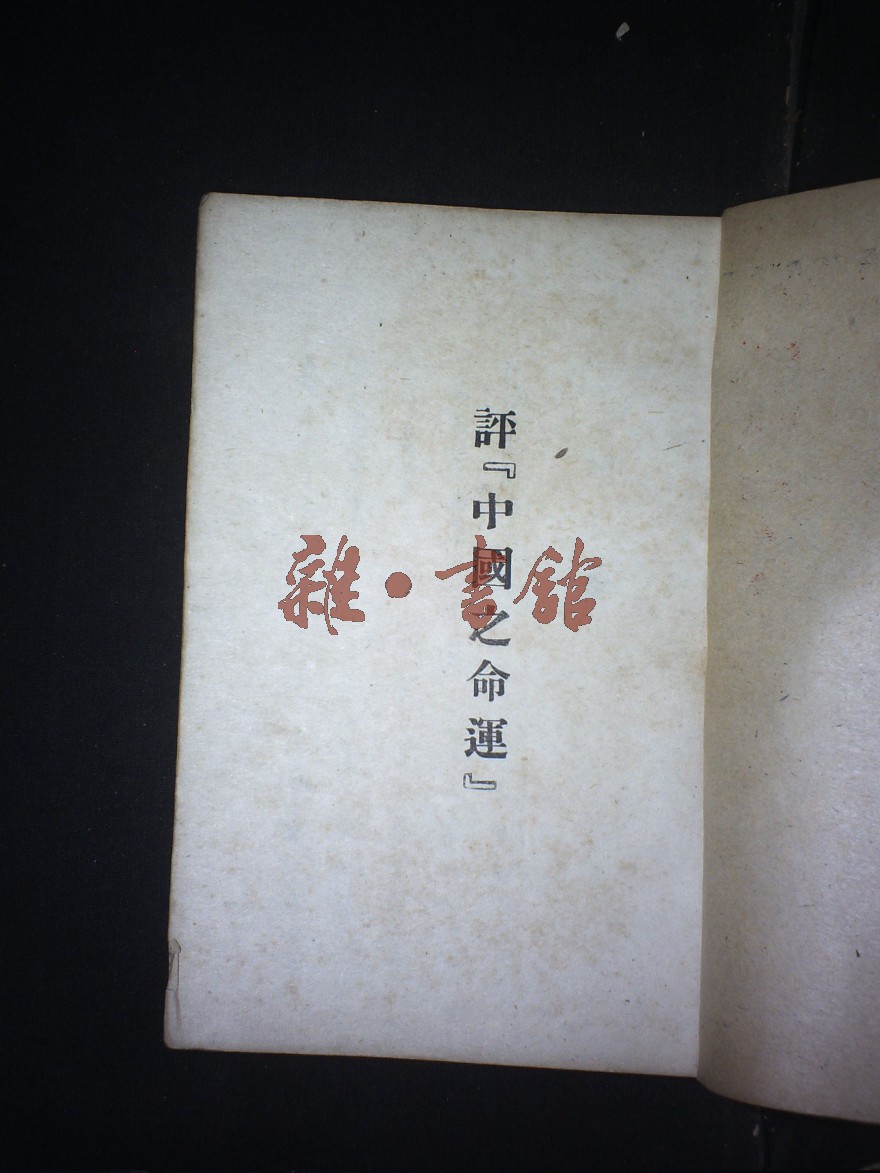 評『中國之命運』
雜·書館